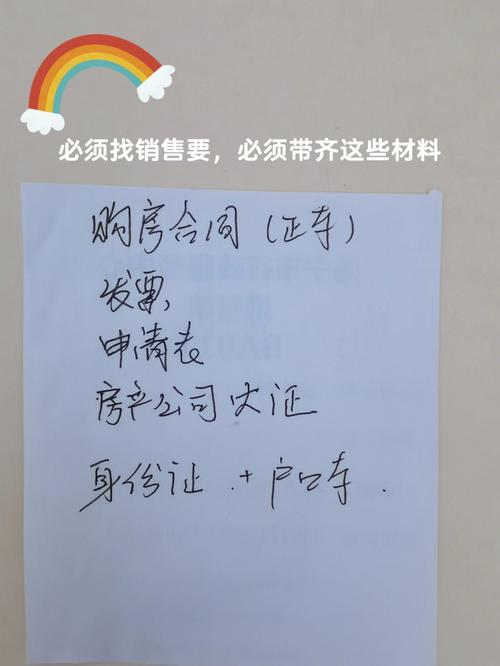 必须找销售要，必须带齐这些材料
购房合同（正本）
发票
申请表
房产公司大证
身份证.+户口本.